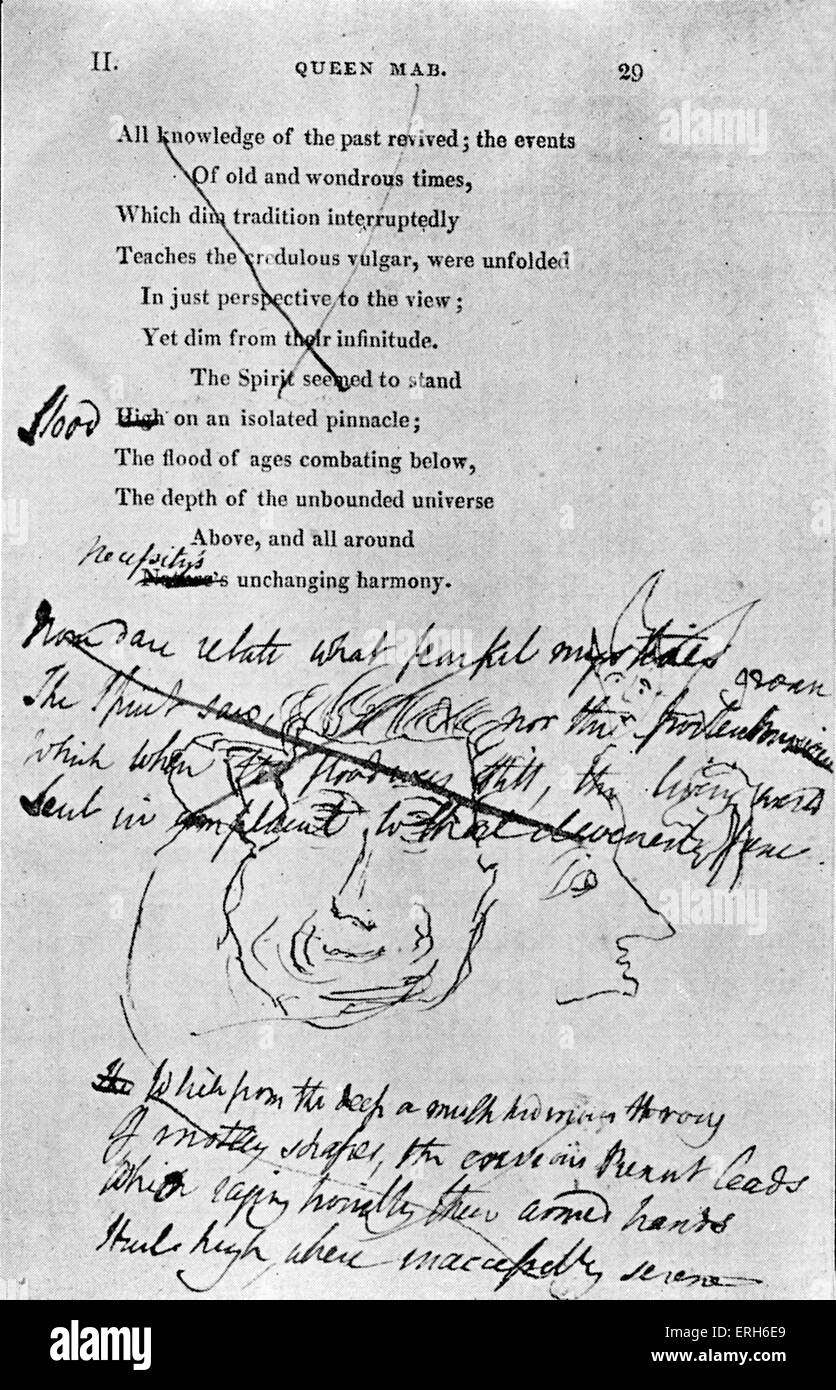 II. QUEEN MAB. 29
All knowledge of the past revived; the events
Of old and wondrous times,
Which dim tradition interruptedly
Teaches the credulous vulgar, were unfolded
In just perspective to the view;
Yet dim from their infinitude.
The Spirit seemed to stand
Stood High on an isolated pinnacle;
The flood of ages combating below,
The depth of the unbounded universe
Above, and all around
Necessity's
Nature's unchanging harmony.
dare relate what fearful mysteries
The Spirit saw, nor the
groan
Which when the flood was still, the living world
Sent in complaint to that fane
The Which from the deep a multitudinous throng
Of motley shapes, the Present leads
Who raging horridly their armed hands
Hurl high, where inaccessibly serene
alamy
Image ID: ERH6E9
www.alamy.com